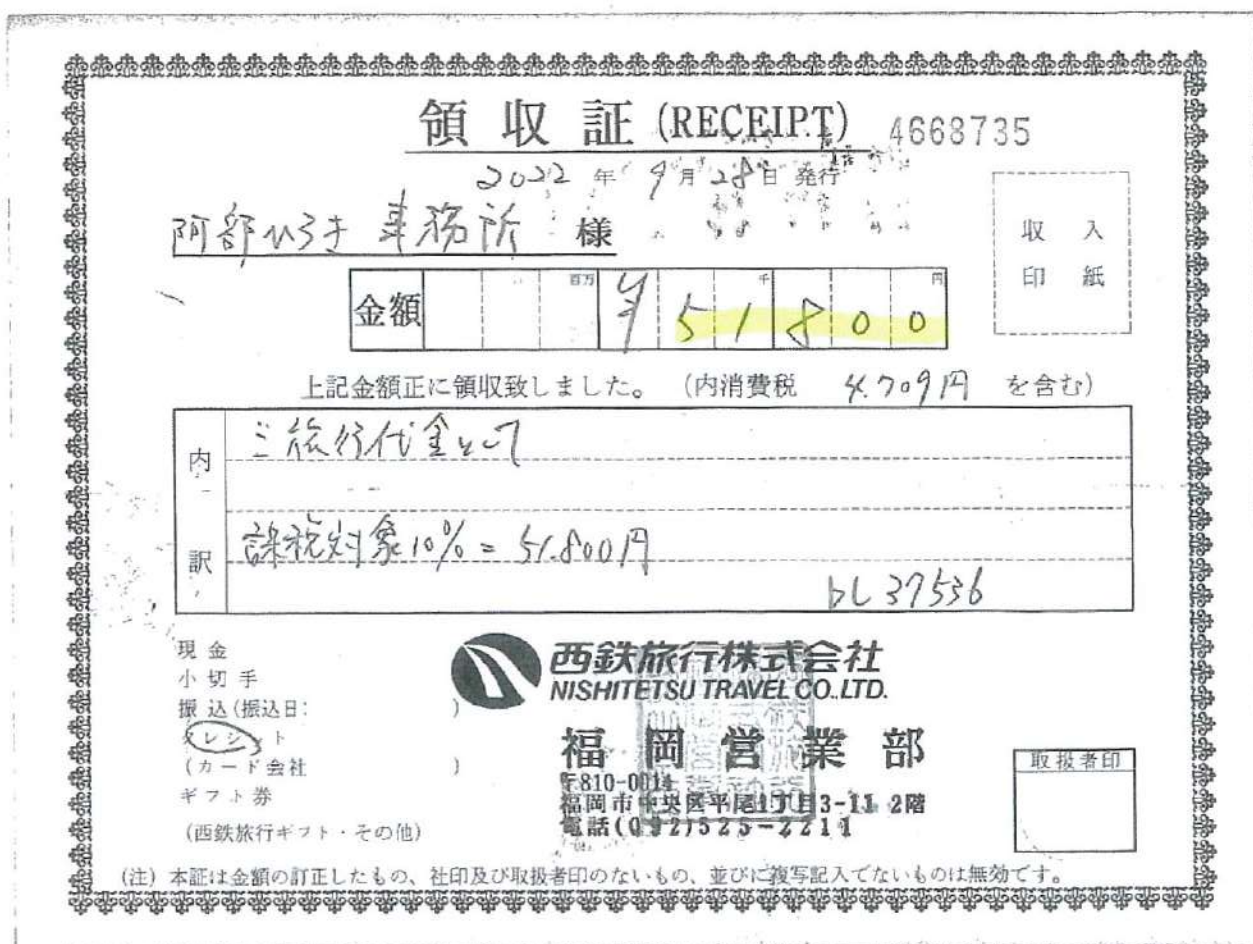 領収証 (RECEIPT) 4668735
2022年 9月 28日 発行
阿部ひろき 事務所 様
収入
印紙
金額 百万 千 円
¥51800
上記金額正に領収致しました。 (内消費税 4,709円 を含む)
内訳
ご旅行代金として
課税対象10% = 51,800円
37536
現金
小切手
振込(振込日: )
クレジット
(カード会社 )
ギフト券
(西鉄旅行ギフト・その他)
西鉄旅行株式会社
NISHITETSU TRAVEL CO.,LTD.
福岡営業部
〒810-0014
福岡市中央区平尾1丁目3-11 2階
電話(092)525-2211
取扱者印
(注) 本証は金額の訂正したもの、社印及び取扱者印のないもの、並びに複写記入でないものは無効です。